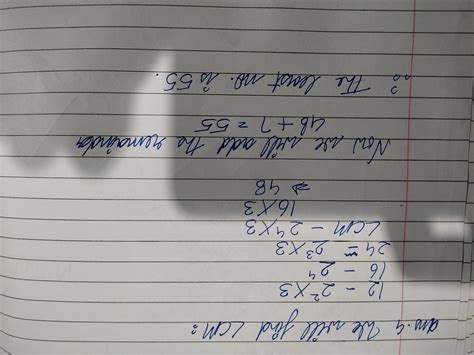 ans.4 We will find LCM:
12 - 2²×3
16 - 2⁴
24 = 2³×3
LCM - 2⁴×3
16×3
⇒ 48
Now we will add the remainder
48 + 7 = 55
∴ The least no. is 55.